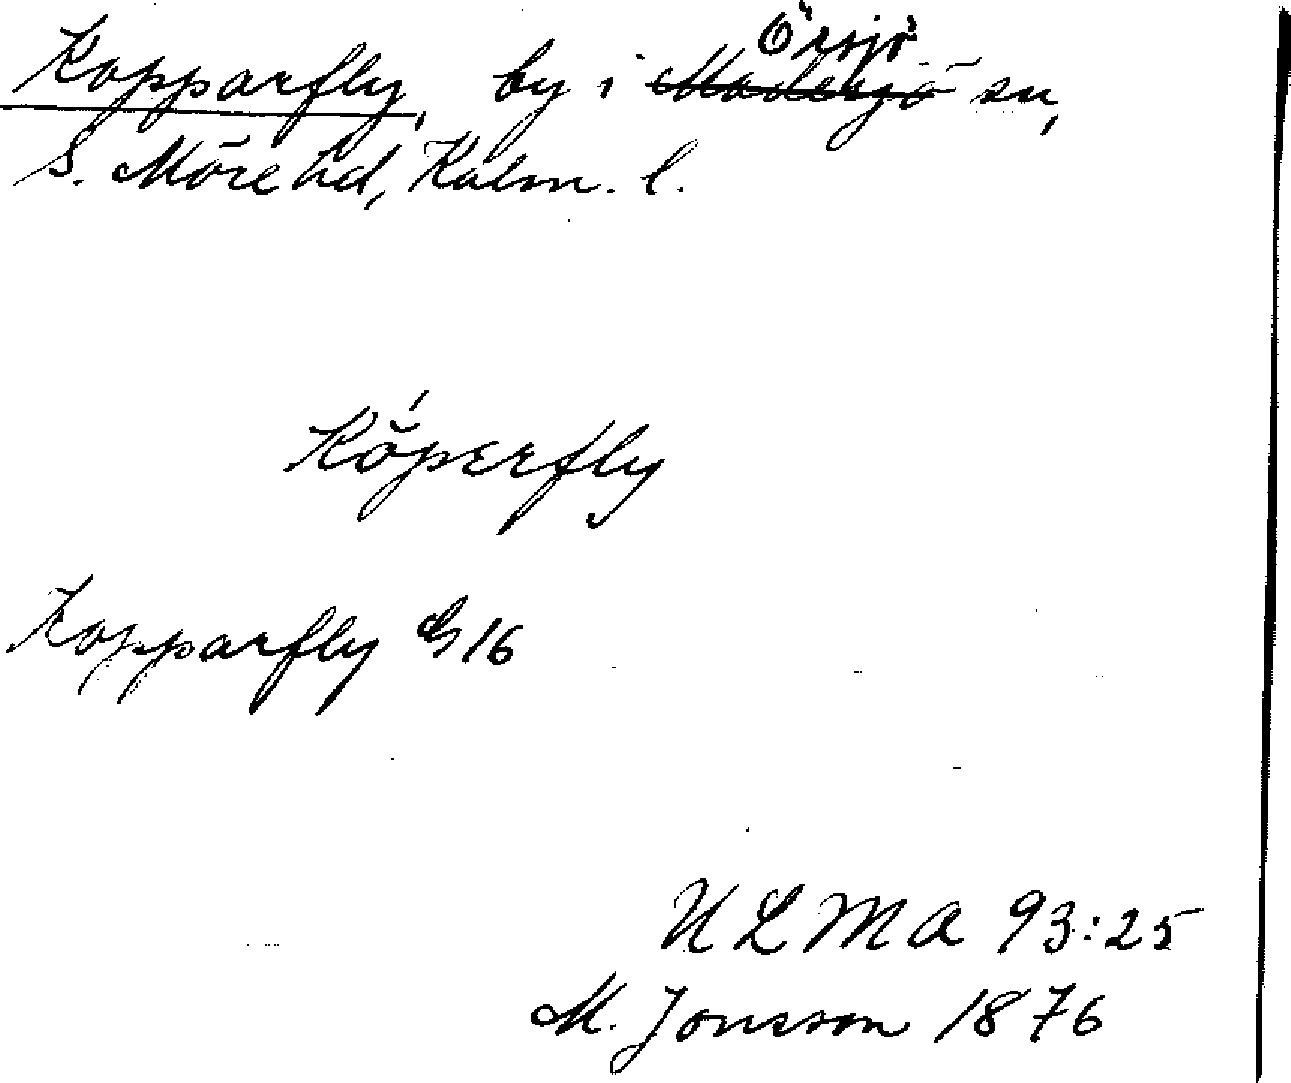 Örsjö
Kopparfly, by i Madesjö sn,
S. Möre hd, Kalm. l.
Kö̆́perfly
Kopparfly G 16
ULMA 93:25
M. Jonsson 1876